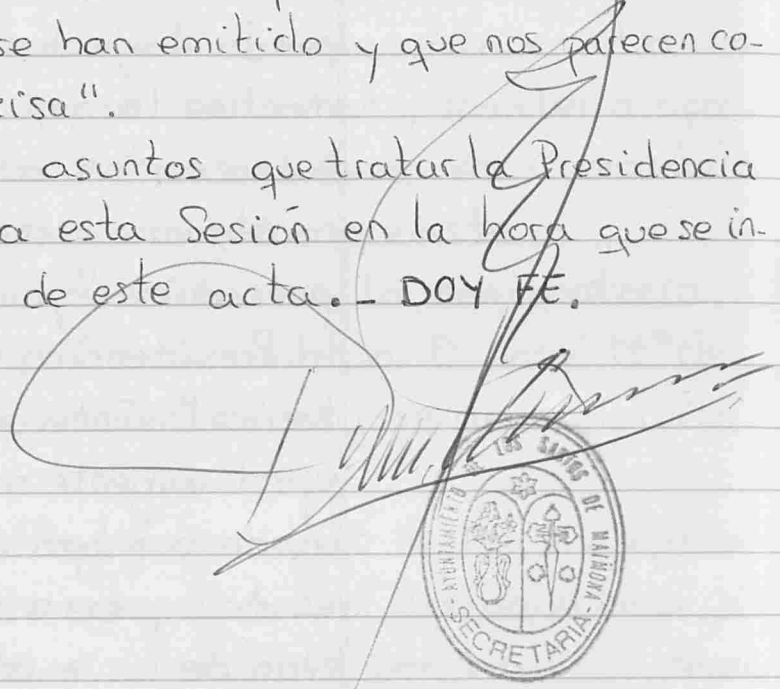 se han emitido y que nos parecen co-
cisa".
asuntos que tratar la Presidencia
a esta Sesión en la hora que se in-
de este acta._ DOY FE.
AYUNTAMIENTO DE LOS SANTOS DE MAIMONA
-SECRETARIA-